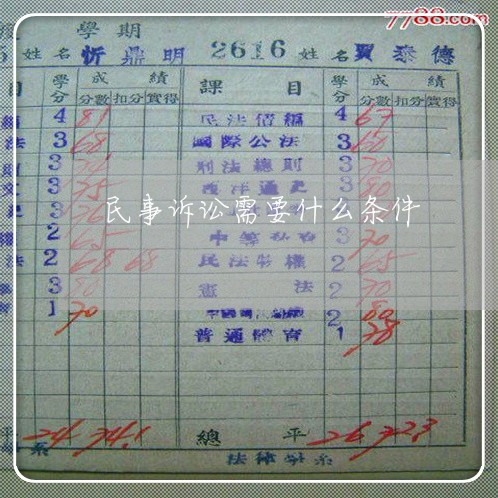 7788.com
學期
姓名 忻鼎明 2616 姓名 賈泰德
目 學分 成績 課目 學分 成績
分數 扣分 實得 分數 扣分 實得
4 81 民法債編 4 67
法 3 68 國際公法 3 60
3 刑法總則 3 70
3 75 西洋通史 3 80
3 76
民事诉讼需要什么条件
2 65 3 70
法 2 68 68 民法物權 2 65
3 80 憲法 2 70
1 70 2 80
普通體育 1 78
平 24 74.1 總平 26 72.3
系 法律學系